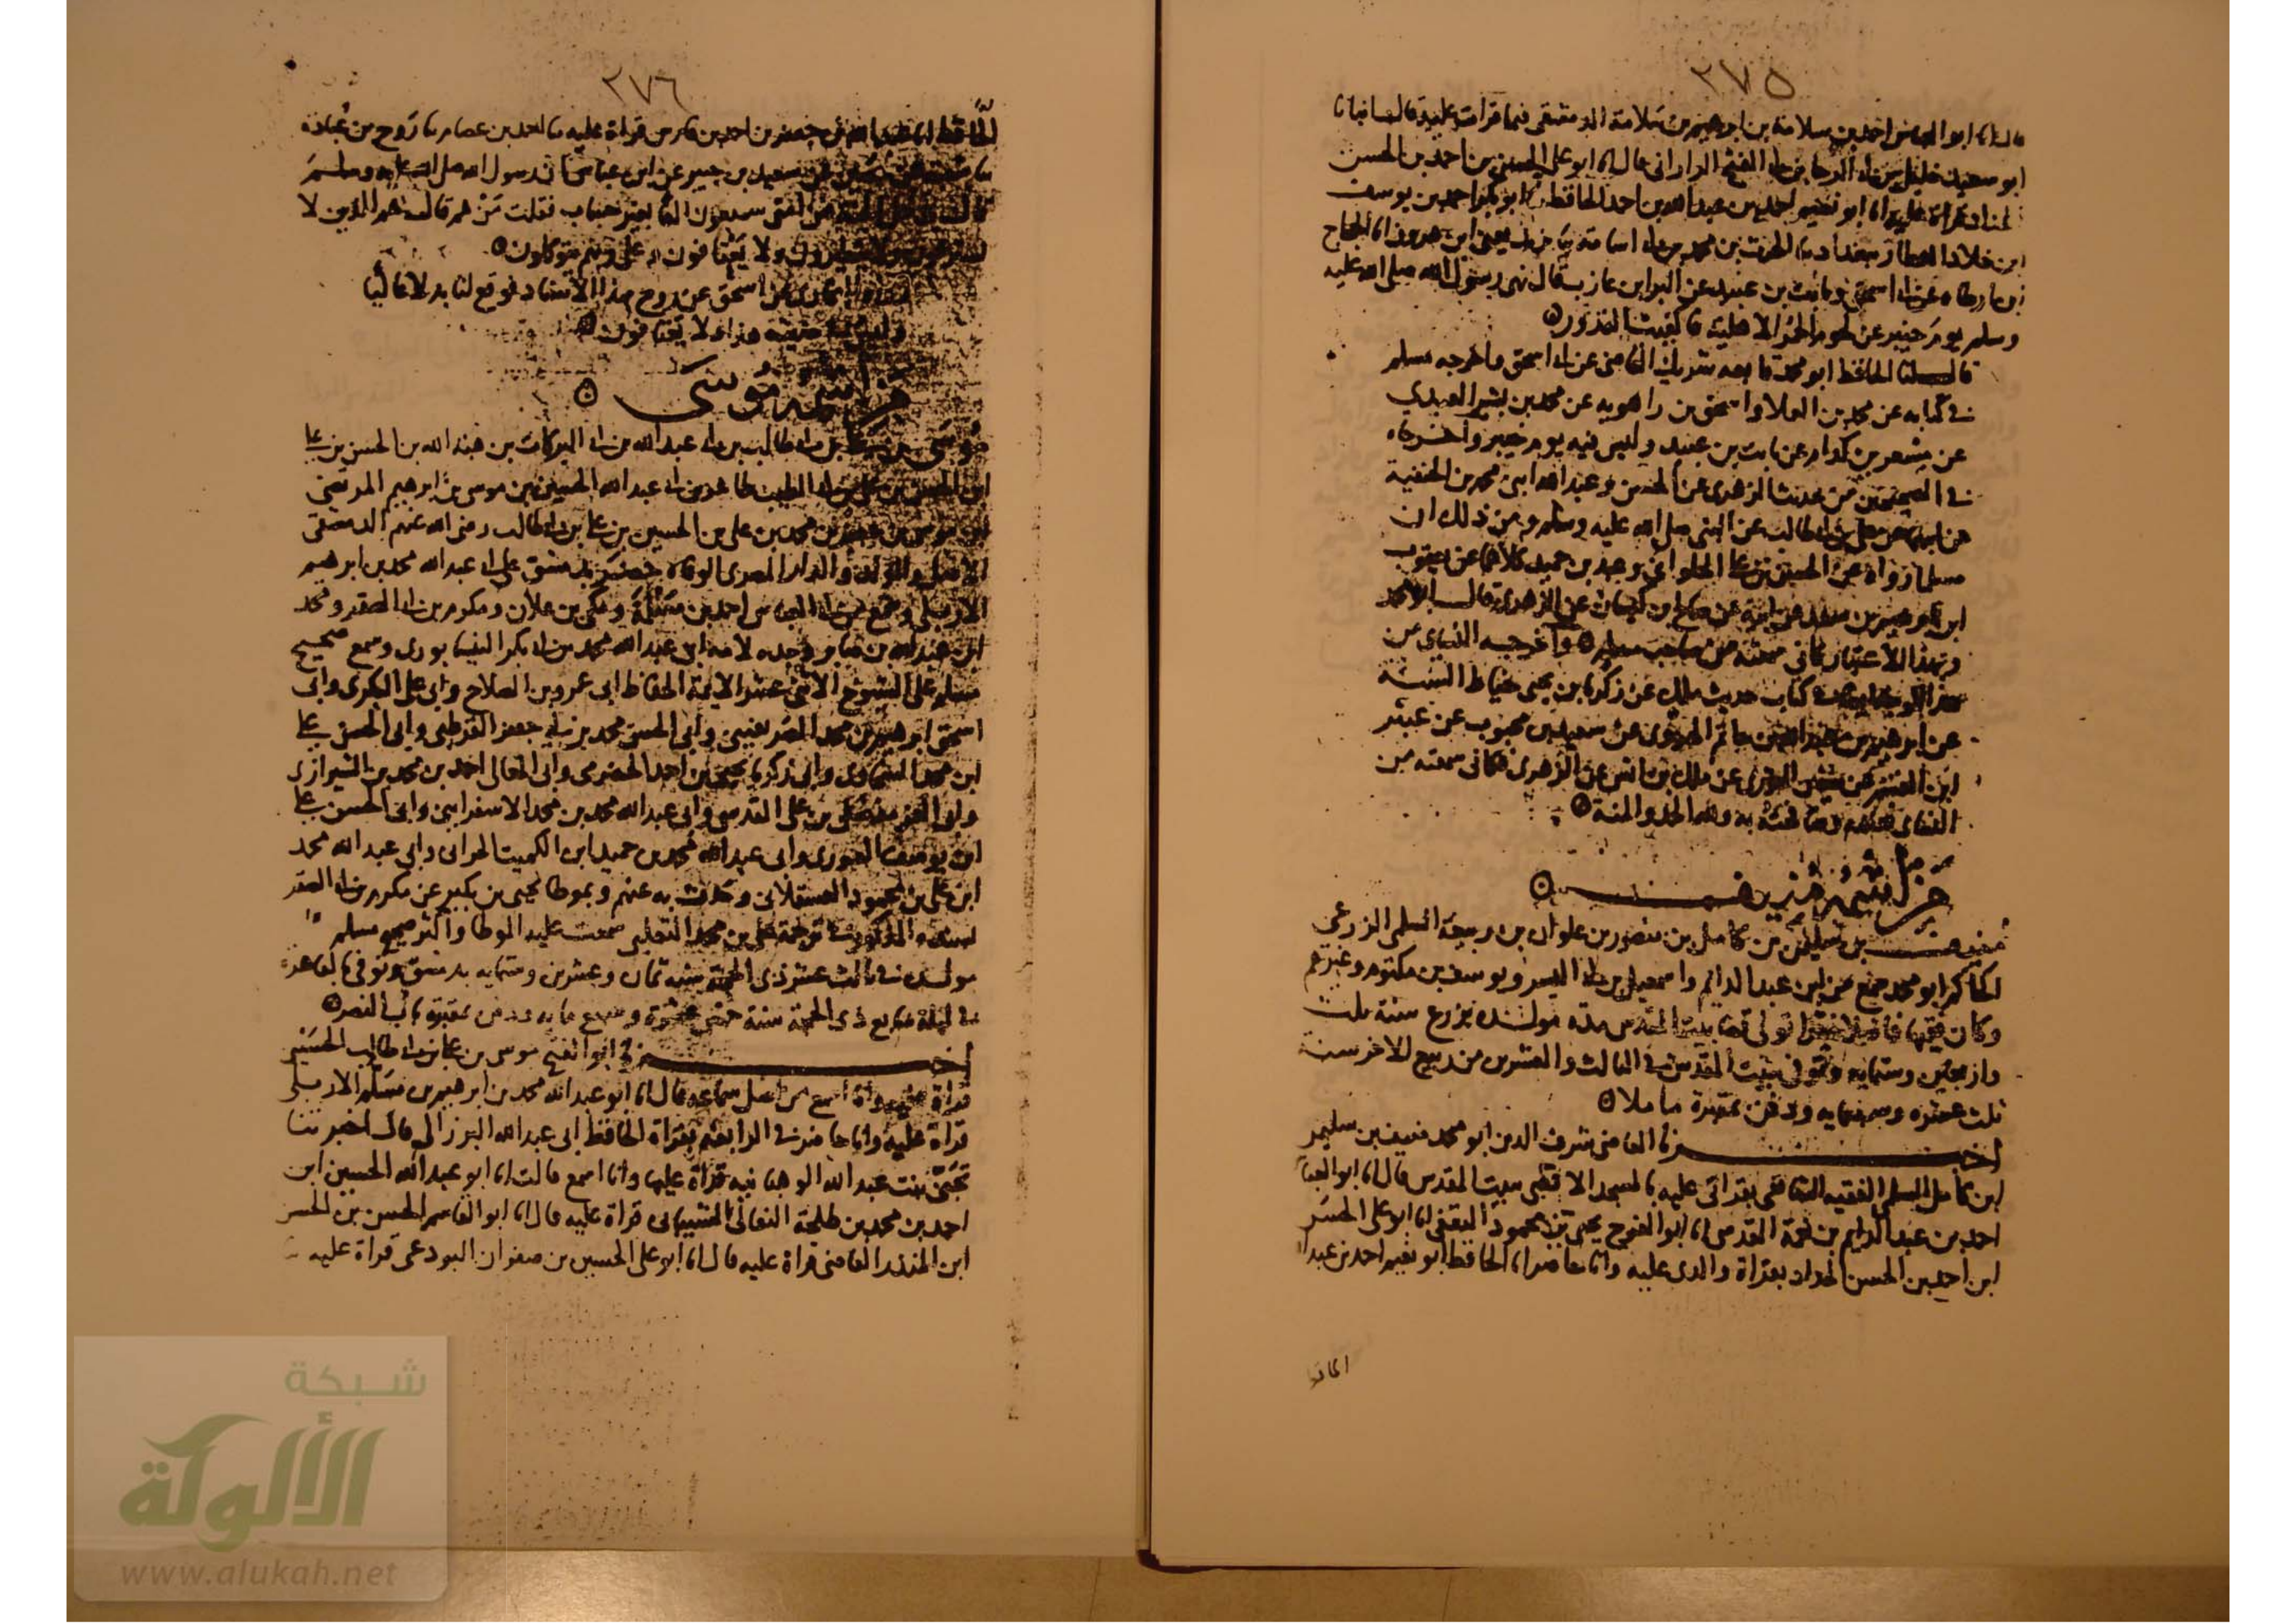 ٢٧٥
قال انا ابو العباس احمد بن سلامة بن ابرهيم بن سلامة الدمشقي فيما قرات عليه قال انبانا
ابو سعيد خليل بن ابي الرجا بن ابي الفتح الداراني قال انا ابو علي الحسن بن احمد بن الحسن
الحداد قراة عليه انا ابو نعيم احمد بن عبد الله بن احمد الحافظ انا ابو بكر احمد بن يوسف
ابن خلاد العطار ببغداد ثنا الحرث بن محمد بن ابي اسامة ثنا يزيد يعني ابن هرون انا الحجاج
بن ارطاه عن ابي اسحق وثابت بن عبيد عن البرا بن عازب قال نهى رسول الله صلى الله عليه
وسلم يوم خيبر عن لحوم الحمر الاهلية فاكفيت القدور
قال لنا الحافظ ابو محمد تابعه شريك القاضي عن ابي اسحق واخرجه مسلم
في كتابه عن محمد بن العلا واسحق بن راهويه عن محمد بن بشر العبدي
عن مسعر بن كدام عن ثابت بن عبيد وليس فيه يوم خيبر واخرجاه
في الصحيحين من حديث الزهري عن الحسن وعبد الله ابني محمد بن الحنفية
عن ابيهما عن علي بن ابي طالب عن النبي صلى الله عليه وسلم ومن ذلك ان
مسلما رواه عن الحسن بن علي الحلواني وعبد بن حميد كلاهما عن يعقوب
ابن ابرهيم بن سعد عن ابيه عن صالح بن كيسان عن الزهري قال ابو محمد
وبهذا الاعتبار كاني سمعته من صاحب مسلم واخرجه النساي من
كتاب حديث ملك عن زكريا بن يحيى خياط السنة
عن ابرهيم بن عبد الله بن حاتم الهروي عن سعيد بن محبوب عن عبثر
ابن القسم عن سفين الثوري عن ملك بن انس عن الزهري فكاني سمعته من
النساي وصافحته به ولله الحمد والمنة
حرف الميم
منيف بن سليمن بن كامل بن منصور بن علوان بن ربيعة السلمي الزرعي
الحاكم ابو محمد سمع من ابن عبد الدايم واسمعيل بن ابي اليسر ويوسف بن مكتوم وغيرهم
وكان فقيها فاضلا تولى قضا بيت المقدس مدة مولده بزرع سنة ثلث
واربعين وستمايه وتوفي ببيت المقدس في الثالث والعشرين من ربيع الاخر سنة
ثلث عشره وسبعمايه ودفن بمقبرة ماملا
اخبرنا القاضي شرف الدين ابو محمد منيف بن سليمن
ابن كامل السلمي الفقيه الشافعي بقراتي عليه بالمسجد الاقصى ببيت المقدس قال انا ابو العباس
احمد بن عبد الدايم بن نعمة المقدسي انا ابو الفرج يحيى بن محمود الثقفي انا ابو علي الحسن
ابن احمد بن الحسن الحداد بقراة والدي عليه وانا حاضر انا الحافظ ابو نعيم احمد بن عبد الله
الحافظ
٢٧٦
الحافظ انا عبد الله بن جعفر بن احمد بن فارس قراة عليه ثنا احمد بن عصام ثنا روح بن عبادة
ثنا شعبة عن حصين عن سعيد بن جبير عن ابن عباس ان رسول الله صلى الله عليه وسلم
قال يدخل الجنة من امتي سبعون الفا بغير حساب فقلت من هم قال هم الذين لا
يسترقون ولا يتطيرون ولا يعتافون وعلى ربهم يتوكلون
رواه البخاري عن اسحق عن روح بهذا الاسناد فوقع لنا بدلا عاليا
وليس في حديثه هذا ولا يعتافون
من اسمه موسى
موسى بن علي بن ابي طالب بن ابي عبد الله بن ابي البركات بن هبة الله بن الحسن بن علي
ابن الحسن بن علي بن ابي الطيب طاهر بن ابي عبد الله الحسين بن موسى بن ابرهيم المرتضى
ابن موسى بن جعفر بن محمد بن علي بن الحسين بن علي بن ابي طالب رضي الله عنهم الدمشقي
الاصل والمولد والدار المصري الوفاه حضر بدمشق على ابي عبد الله محمد بن ابرهيم
الاربلي وسمع من ابي العباس احمد بن مسلمة ومكي بن علان ومكرم بن ابي الصقر ومحمد
ابن عبد الله بن وجده لامه ابي عبد الله محمد بن ابي بكر النيسابوري وسمع صحيح
مسلم على الشيوخ الاثني عشر الايمة الحفاظ ابي عمرو بن الصلاح وابي علي البكري وابي
اسحق ابرهيم بن محمد الصريفيني وابي الحسن محمد بن ابي جعفر القرطبي وابي الحسن علي
ابن محمد السخاوي وابي زكريا يحيى بن احمد الحضرمي وابي المعالي احمد بن محمد بن الشيرازي
وابي العز مفضل بن علي القدسي وابي عبد الله محمد بن محمد الاسفرايني وابي الحسن علي
ابن يوسف الصوري وابي عبد الله محمد بن حميد ابن الكميت الحراني وابي عبد الله محمد
ابن علي بن محمود العسقلاني وحدث به عنهم وبموطا يحيى بن بكير عن مكرم بن ابي الصقر
بسنده المذكور في ترجمة علي بن محمد الثعلبي سمعت عليه الموطا واكثر صحيح مسلم
مولده في ثالث عشر ذي الحجة سنة ثمان وعشرين وستمايه بدمشق وتوفي بالقاهرة
في ليلة سابع ذي الحجة سنة خمس عشرة وسبع مايه ودفن بمقبرة باب النصر
اخبرنا ابو الفتح موسى بن علي بن ابي طالب الحسيني
قراة عليه وانا اسمع من اصل سماعه قال انا ابو عبد الله محمد بن ابرهيم بن مسلم الاربلي
قراة عليه وانا حاضر في الرابعة بقراة الحافظ ابي عبد الله البرزالي قال اخبرتنا
تجني بنت عبد الله الوهبانية قراة عليها وانا اسمع قالت انا ابو عبد الله الحسين ابن
احمد بن محمد بن طلحة النعالي قراة عليه قال انا ابو القاسم الحسن بن الحسن
ابن المنذر القاضي قراة عليه قال انا ابو علي الحسين بن صفوان البردعي قراة عليه
شبكة
الألوكة
www.alukah.net